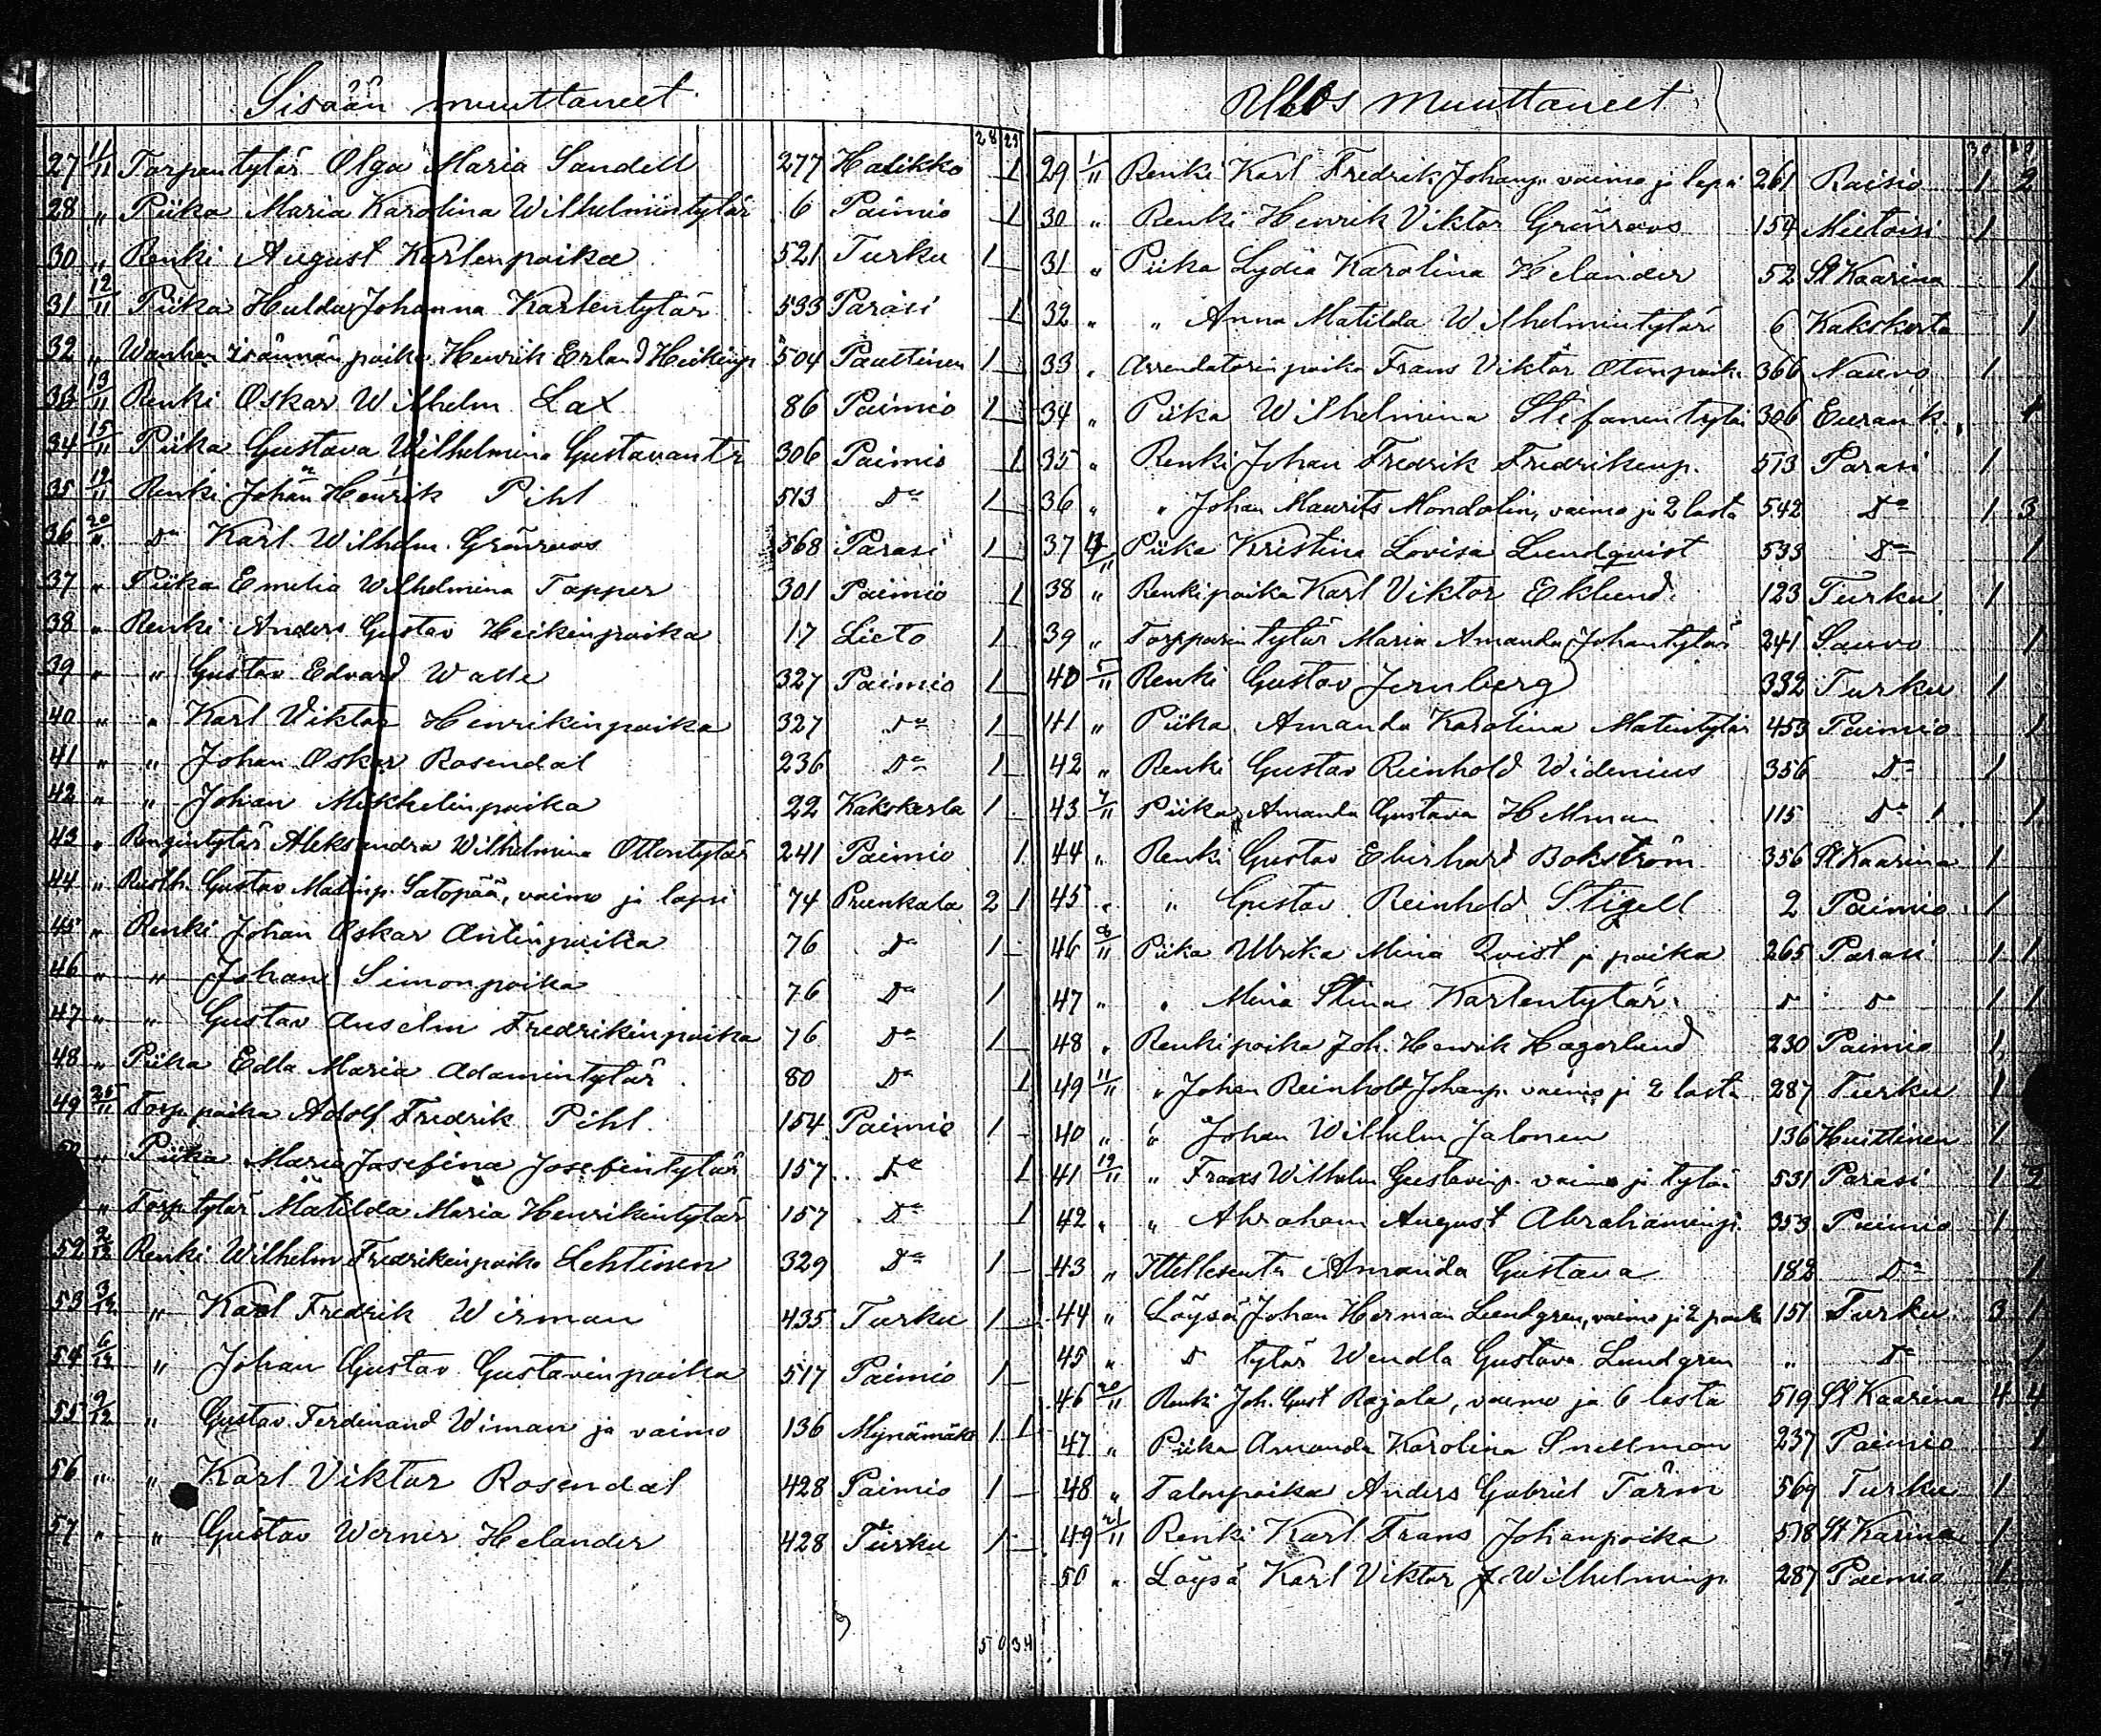 Sisään muuttaneet
28 25
27 11/11 Torpantytär Olga Maria Sandell 277 Halikko 1
28 " Piika Maria Karolina Wilhelmintytär 6 Paimio 1
30 " Renki August Karlenpoika 521 Turku 1
31 12/11 Piika Hulda Johanna Karlentytär 533 Paräsi 1
32 " Wanhan isännän poika Henrik Erland Heikinp 504 Paattinen 1
33 13/11 Renki Oskar Wilhelm Lax 86 Paimio 1
34 15/11 Piika Gustava Wilhelmina Gustavantr 306 Paimio 1
35 19/11 Renki Johan Henrik Pihl 513 Do 1
36 20/11 Do Karl Wilhelm Grönroos 568 Parasi 1
37 " Piika Emelia Wilhelmina Tapper 301 Paimio 1
38 " Renki Anders Gustav Heikinpoika 17 Lieto 1
39 " " Gustav Edvard Walle 327 Paimio 1
40 " " Karl Viktor Henrikinpoika 327 Do 1
41 " " Johan Oskar Rosendal 236 Do 1
42 " " Johan Mikkelinpoika 22 Kakskerta 1
43 " Rengintytär Aleksandra Wilhelmina Ottontytär 241 Paimio 1
44 " Rusth. Gustav Matinp. Satopää, vaimo ja lapsi 74 Prunkala 2 1
45 " Renki Johan Oskar Antinpoika 76 Do 1
46 " " Johan Simonpoika 76 Do 1
47 " " Gustav Anselm Fredrikinpoika 76 Do 1
48 " Piika Edla Maria Adamintytär 80 Do 1
49 25/11 Torp. poika Adolf Fredrik Pihl 154 Paimio 1
" Piika Maria Josefina Josefintytär 157 Do 1
" Torp. tytär Matilda Maria Henrikintytär 157 Do 1
52 2/12 Renki Wilhelm Fredrikinpoika Lehtinen 329 Do 1
53 3/12 " Karl Fredrik Wirman 435 Turku 1
54 6/12 " Johan Gustav Gustavinpoika 517 Paimio 1
55 9/12 " Gustav Ferdinand Wiman ja vaimo 136 Mynämäki 1 1
56 " " Karl Viktor Rosendal 428 Paimio 1
57 " " Gustav Werner Helander 428 Turku 1
50 34
Ulos muuttaneet
29 1/11 Renki Karl Fredrik Johanp. vaimo ja lapsi 261 Raisio 1 2
30 " Renki Henrik Viktor Grönroos 154 Mietoisi 1
31 " Piika Lydia Karolina Helander 52 St Kaarina 1
32 " " Anna Matilda Wilhelmintytär 6 Kakskerta 1
33 " Arrendatorin poika Frans Viktor Otonpoika 366 Nauvo 1
34 " Piika Wilhelmina Stefanintytär 306 Eurank. 1
35 " Renki Johan Fredrik Fredrikinp. 513 Parasi 1
36 " " Johan Maurits Mondolin, vaimo ja 2 lasta 542 Do 1 3
37 4/11 Piika Kristina Lovisa Lundqvist 533 Do 1
38 " Renkipoika Karl Viktor Eklund 123 Turku 1
39 " Torpparin tytär Maria Amanda Johantytär 241 Sauvo 1
40 5/11 Renki Gustav Jernberg 332 Turku 1
41 " Piika Amanda Karolina Matintytär 453 Paimio 1
42 " Renki Gustav Reinhold Widenius 356 Do 1
43 7/11 Piika Amanda Gustava Hellman 115 Do 1
44 " Renki Gustav Eberhard Bokström 356 St Kaarina 1
45 " " Gustav Reinhold Stigell 2 Paimio 1
46 8/11 Piika Ulrika Mina Qvist ja poika 265 Parasi 1 1
47 " " Mina Stina Karlentytär D Do 1 1
48 " Renkipoika Joh. Henrik Hagerlund 230 Paimio 1
49 11/11 " Johan Reinhold Johanp. vaimo ja 2 lasta 287 Turku 1
40 " " Johan Wilhelm Jalonen 136 Huittinen 1
41 19/11 " Frans Wilhelm Gustavinp. vaimo ja tytär 531 Parasi 1 2
42 " " Abraham August Abrahaminp. 353 Paimio 1
43 " Amanda Gustava 182 Do 1
44 " Löysä Johan Herman Lundgren, vaimo ja 2 poika 151 Turku 3 1
45 " D tytär Wendla Gustava Lundgren " Do 1
46 20/11 Renki Joh. Gust Rajala, vaimo ja 6 lasta 519 St Kaarina 4 4
47 " Piika Amanda Karolina Snellman 237 Paimio 1
48 " Talonpoika Anders Gabriel Tärm 569 Turku 1
49 21/11 Renki Karl Frans Johanpoika 518 St Karina 1
50 " Löysä Karl Viktor Wilhelminp. 287 Paimio 1